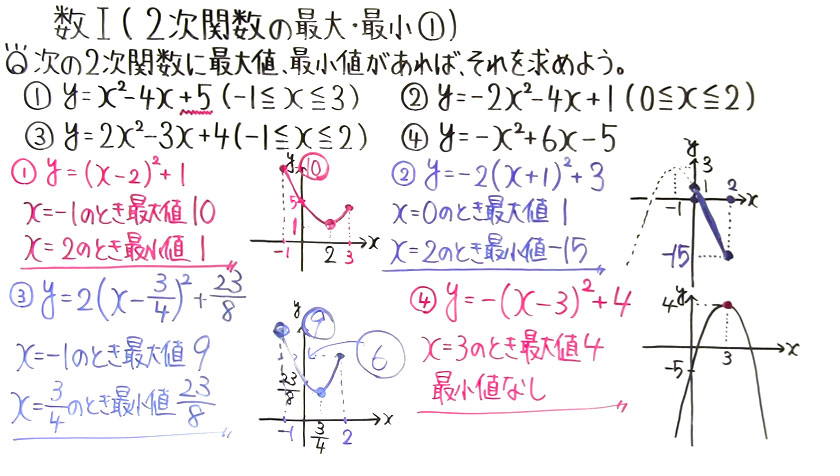 数I(2次関数の最大・最小①)
次の2次関数に最大値、最小値があれば、それを求めよう。
① y=x²-4x+5 (-1≦x≦3) ② y=-2x²-4x+1 (0≦x≦2)
③ y=2x²-3x+4 (-1≦x≦2) ④ y=-x²+6x-5
① y=(x-2)²+1
x=-1のとき最大値10
x=2のとき最小値1
y
10
5
1
-1 2 3 x
② y=-2(x+1)²+3
x=0のとき最大値1
x=2のとき最小値-15
y
3
1 2
-1 x
-15
③ y=2(x-3/4)²+23/8
x=-1のとき最大値9
x=3/4のとき最小値23/8
y
9
6
23/8
-1 3/4 2 x
④ y=-(x-3)²+4
x=3のとき最大値4
最小値なし
y
4
3 x
-5